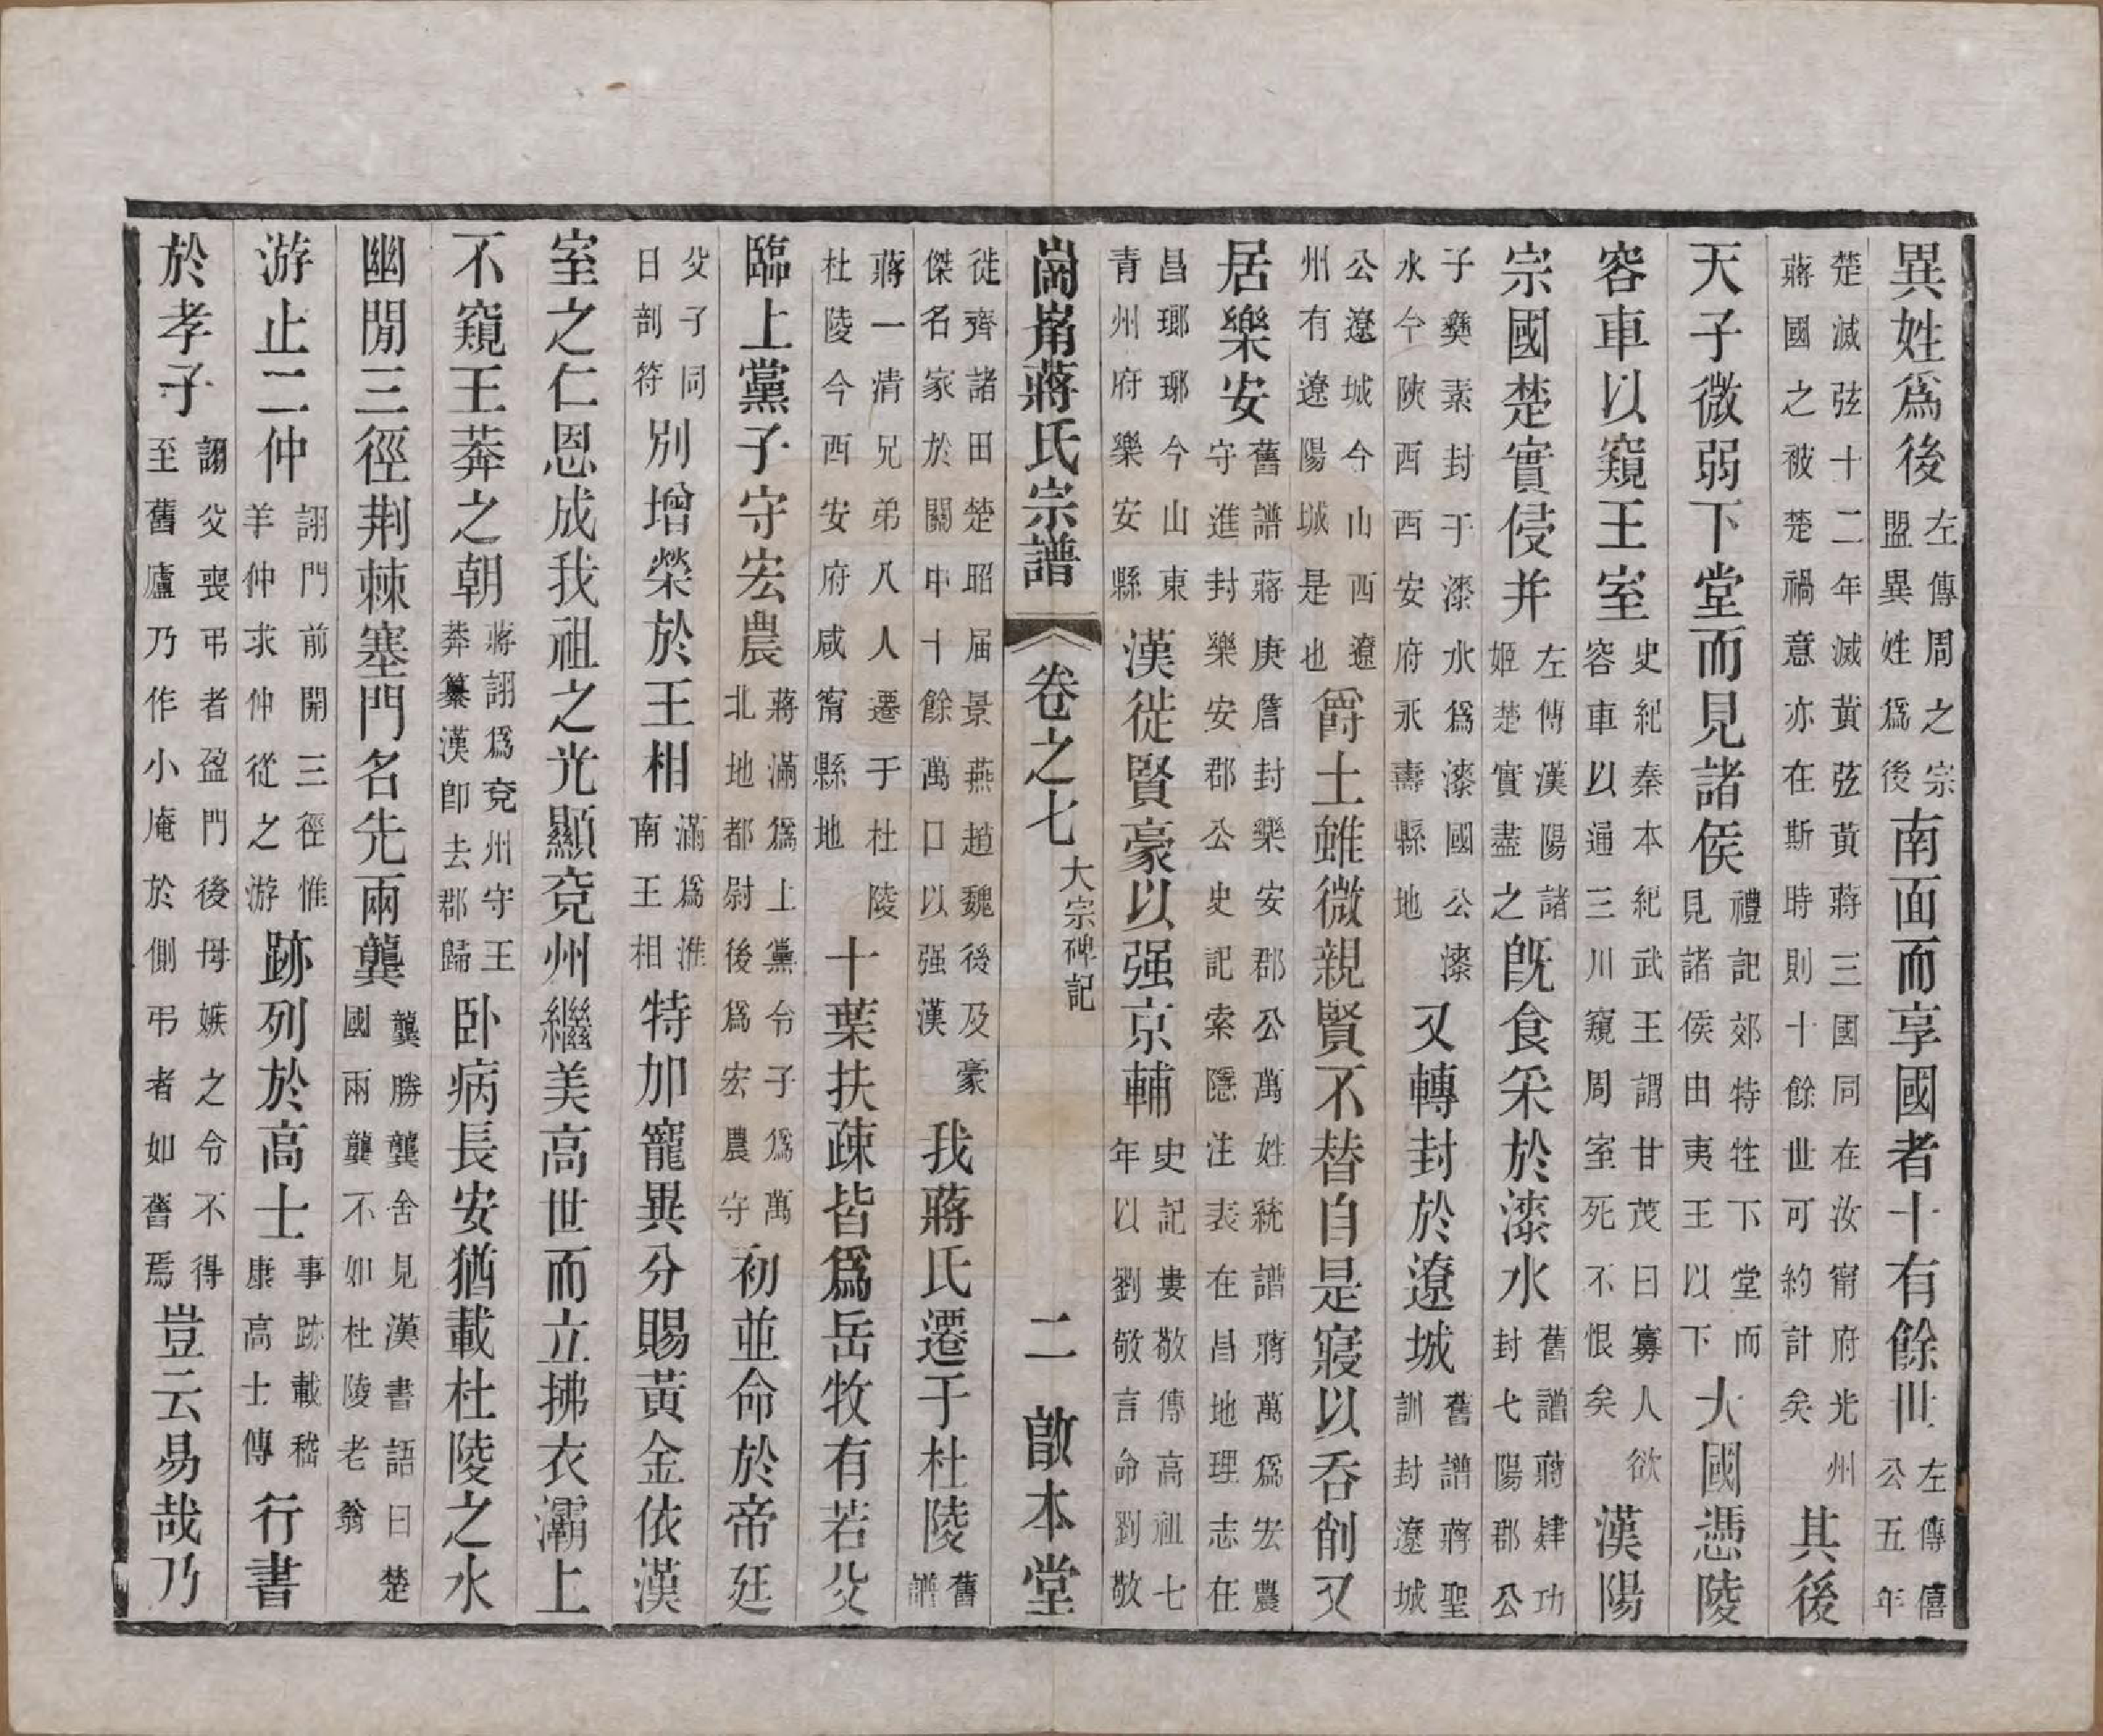 異姓爲後左傳周之宗盟異姓爲後南面而享國者十有餘世左傳僖公五年
楚滅弦十二年滅黃弦黃蔣三國同在汝甯府光州蔣國之被楚禍意亦在斯時則十餘世可約計矣其後
天子微弱下堂而見諸侯禮記郊特牲下堂而見諸侯由夷王以下大國憑陵
容車以窺王室史紀秦本紀武王謂甘茂曰寡人欲容車以通三川窺周室死不恨矣漢陽
宗國楚實侵并左傳漢陽諸姬楚實盡之旣食采於漆水舊譜蔣肄功封弋陽郡公
子彝素封于漆水爲漆國公漆水今陝西西安府永壽縣地又轉封於遼城舊譜蔣聖訓封遼城
公遼城今山西遼州有遼陽城是也爵土雖微親賢不替自是寢以吞削又
居樂安舊譜蔣庚詹封樂安郡公萬姓統譜蔣萬爲宏農守進封樂安郡公史記索隱注表在昌地理志在
昌瑯琊今山東青州府樂安縣漢徙賢豪以强京輔史記婁敬傳高祖七年以劉敬言命劉敬
崗崀蔣氏宗譜 卷之七 大宗碑記 二 敬本堂
徙齊諸田楚昭屈景燕趙魏後及豪傑名家於關中十餘萬口以强漢我蔣氏遷于杜陵舊譜
蔣一清兄弟八人遷于杜陵杜陵今西安府咸甯縣地十葉扶疎皆爲岳牧有若父
臨上黨子守宏農蔣滿爲上黨令子爲萬北地都尉後爲宏農守初並命於帝廷
父子同日剖符別增榮於王相滿爲淮南王相特加寵異分賜黃金依漢
室之仁恩成我祖之光顯兗州繼美高世而立拂衣灞上
不窺王莽之朝蔣詡爲兗州守王莽簒漢卽去郡歸臥病長安猶載杜陵之水
幽閒三徑荆棘塞門名先兩龔龔勝龔舍見漢書語曰楚國兩龔不如杜陵老翁
游止二仲詡門前開三徑惟羊仲求仲從之游跡列於高士事跡載嵇康高士傳行書
於孝子詡父喪弔者盈門後母嫉之令不得至舊廬乃作小庵於側弔者如舊焉豈云易哉乃